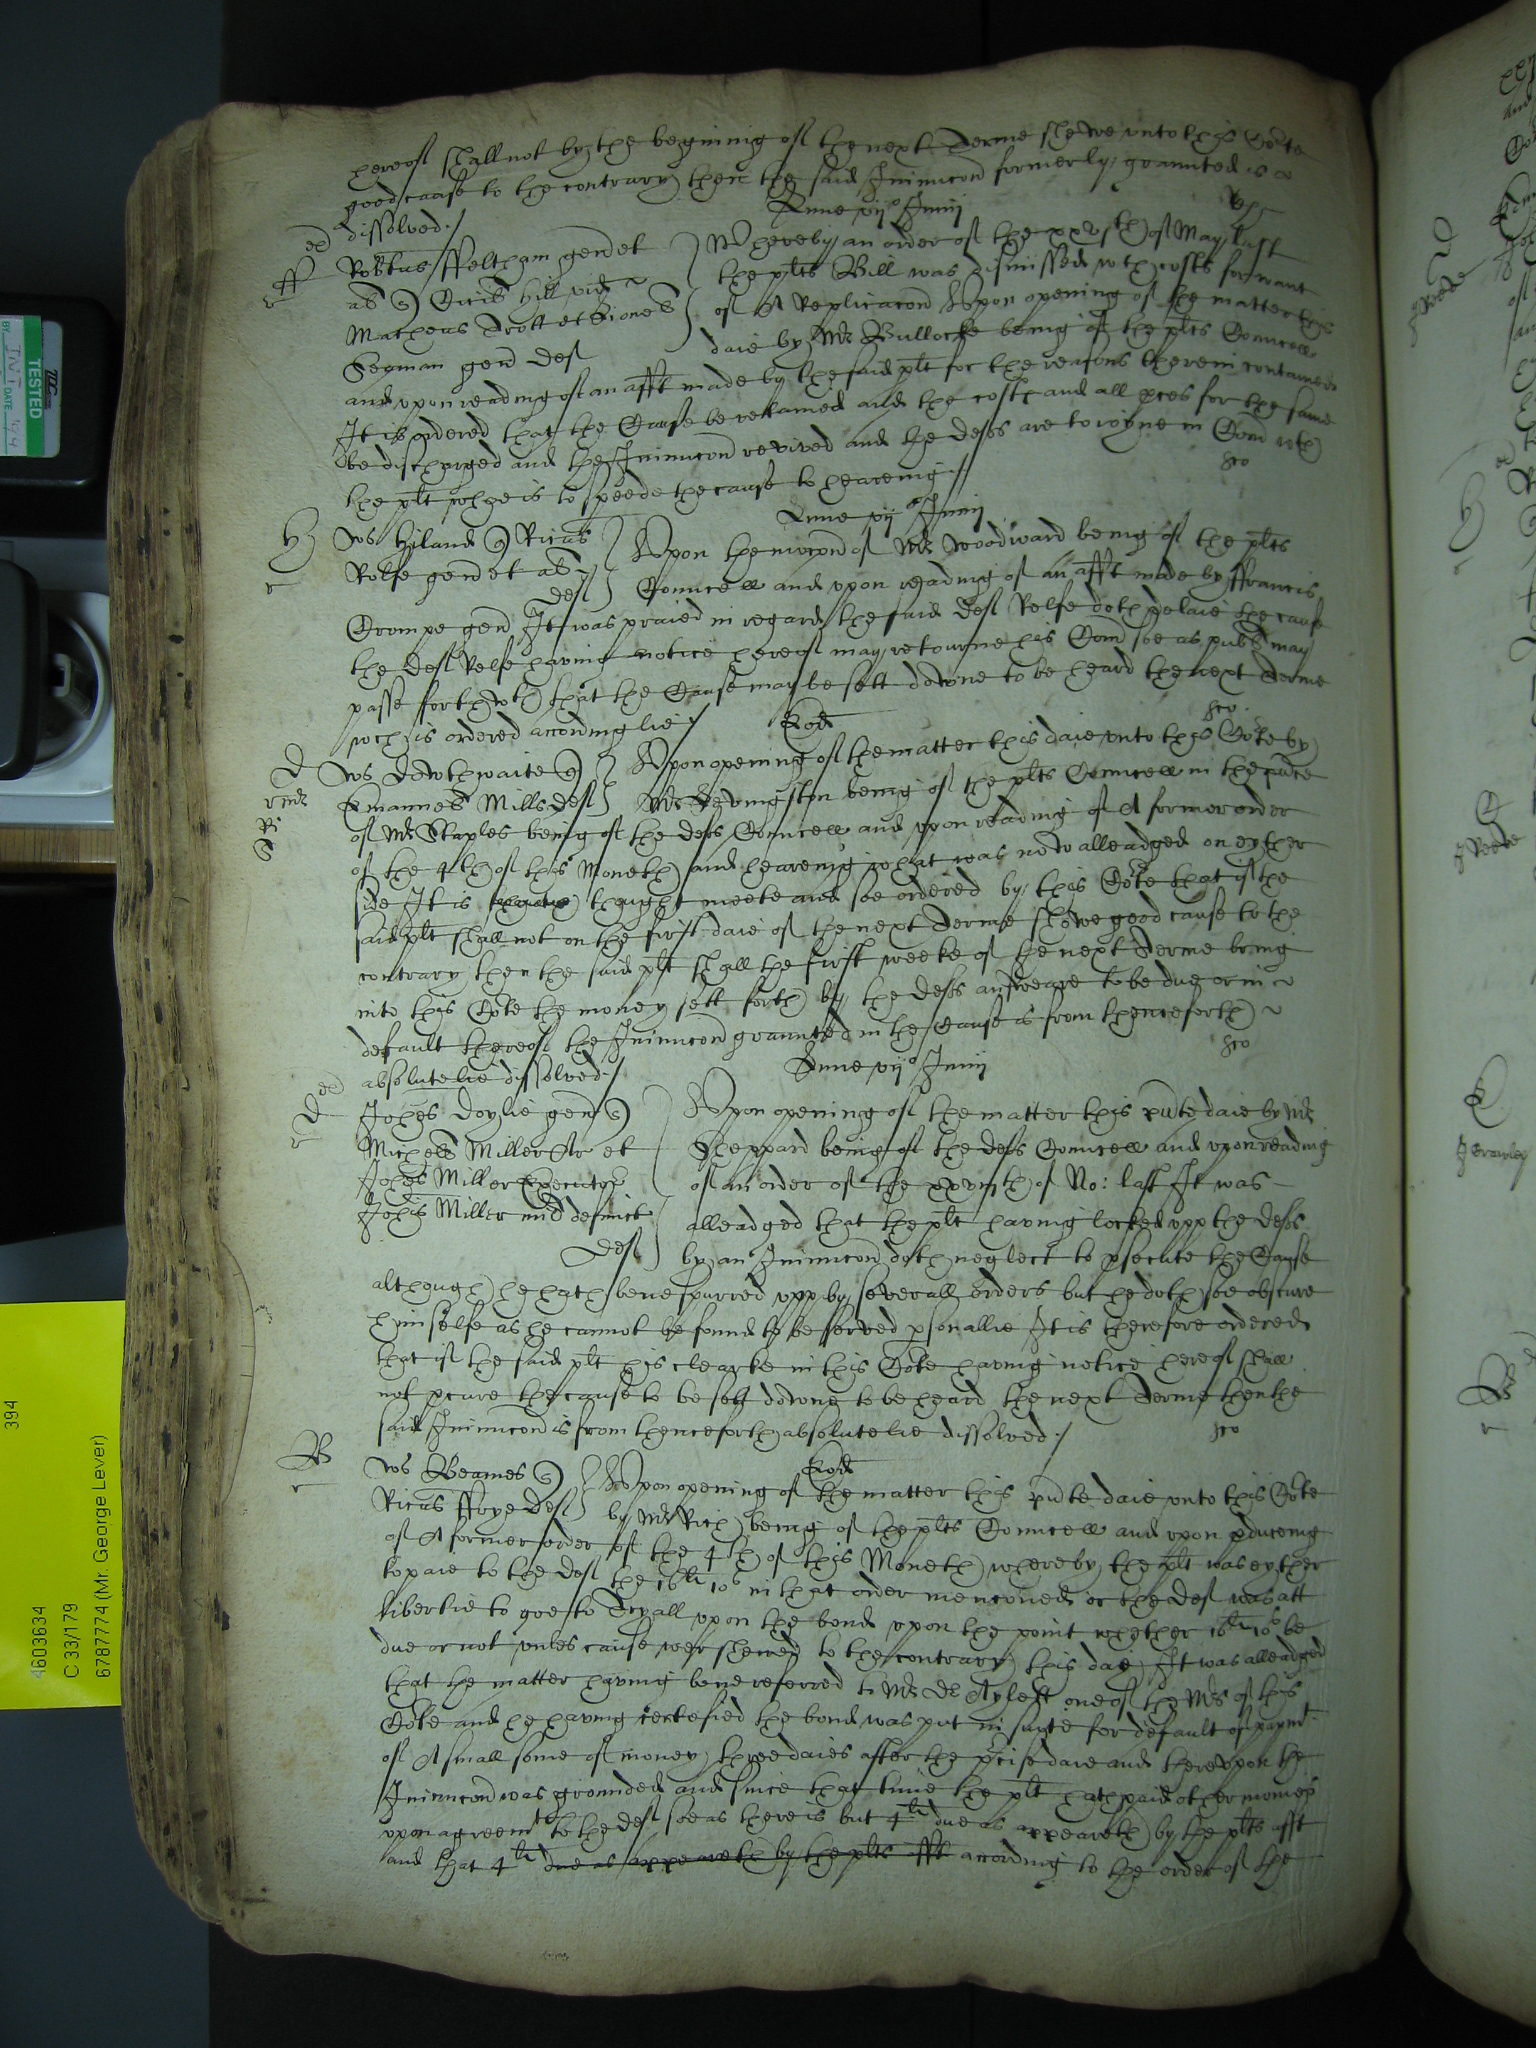 hereof shall not by the begining of the next Terme shewe unto this Co:te
good cause to the contrary then the said Iniuncon formerly graunted is
dissolved./
Lune vijo Junij
Robtus ffeltham gen et
al q Hill vid
Matheus Trott et
Seaman gen Def
Whereby an order of the xxvjth of May last
the plts Bill was dismissed wth costs for want
of A Replicacon Upon opening of the matter this
daie by Mr Bullocke being of the plts Councell
and upon reading of an afft made by the said plt for the reasons therein contained
It is ordered that the Cause be retained and the costs and all pces for the same
be discharged and the Iniuncon revived and the defts are to ioyne in Com wth
the plt whoe is to speede the cause to hearing //
Lune vij o Junij
Ws Hiland q Ricus
Rolfe gen et al
Def
Upon the mocon of Mr Woodward being of the plts
Councell and upon reading of an afft made by ffrancis
Crompe gen It was praied in regard the said Def Rolfe doth delaie the cause
the Def Rolfe having notice hereof may retourne his Com soe as publ may
passe forthwth that the Cause may be sett downe to be heard the next Terme
wch is ordered accordinglie /
Eod
Ws Dowthwaite q
Emanuel Mills Def
Upon opening of the matter this daie unto this Co:te by
Mr Levingston being of the plts Councell in the pnce
of Mr Staples being of the defts Councell and upon reading of A former order
of the 4th of this Moneth and hearing what was now alleadged on eyther
side It is thought meete and soe ordered by this Co:te that if the
said plt shall not on the first daie of the next Terme shewe good cause to the
contrary then the said plt shall the first weeke of the next Terme bring
into this Co:te the money sett forth by the defts answeare to be due or in
default thereof the Iniuncon graunted in the Cause is from thenceforth
absolutelie dissolved./
Lune vijo Junij
Johes Doylie gen q
Michael Miller Ar et
Johes Miller executor
Johis Miller mil defunct
Def
Upon opening of the matter this pnte daie by Mr
Sheppard being of the defts Councell and upon reading
of an order of the of No: last It was
alleadged that the plt having locked upp the defts
by an Iniuncon doth neglect to psecute the Cause
although he hath bene spurred upp by severall orders but he doth soe obscure
himselfe as he cannot be found to be served psonallie It is therefore ordered
that if the said plt his clearke in this Co:te having notice hereof shall
not pcure the cause to be sett downe to be heard the next Terme then the
said Iniuncon is from thenceforth absolutelie dissolved./
Eod
Ws Beames q
Ricus ffrye Def
Upon opening of the matter this pnte daie unto this Co:te
by Mr Rich being of the plts Councell and upon pduceing
of A former order of the 4th of this Moneth whereby the plt was eyther
to paie to the Def the 16li 10s in that order menconed or the Def was att
libertie to goe to Tryall upon the bond upon the point whether 16li 10s be
due or not unles cause were shewed to the contrary this daie It was alleadged
that the matter having bene referred to Mr Dr Ayleft one of the Mrs of this
Co:te and he having certefied the bond was put in suyte for default of paymt
of A small some of money three daies after the pcise daie and thereupon the
Iniuncon was grounded and since that time the plt hath paid other moneys
upon agreemt to the def soe as there is but 4li due as appeareth by the plts afft
and that 4li due as appeareth by the plts afft according to the order of the
TESTED
DATE
394
4603634
C 33/179
6787774 (Mr. George Lever)